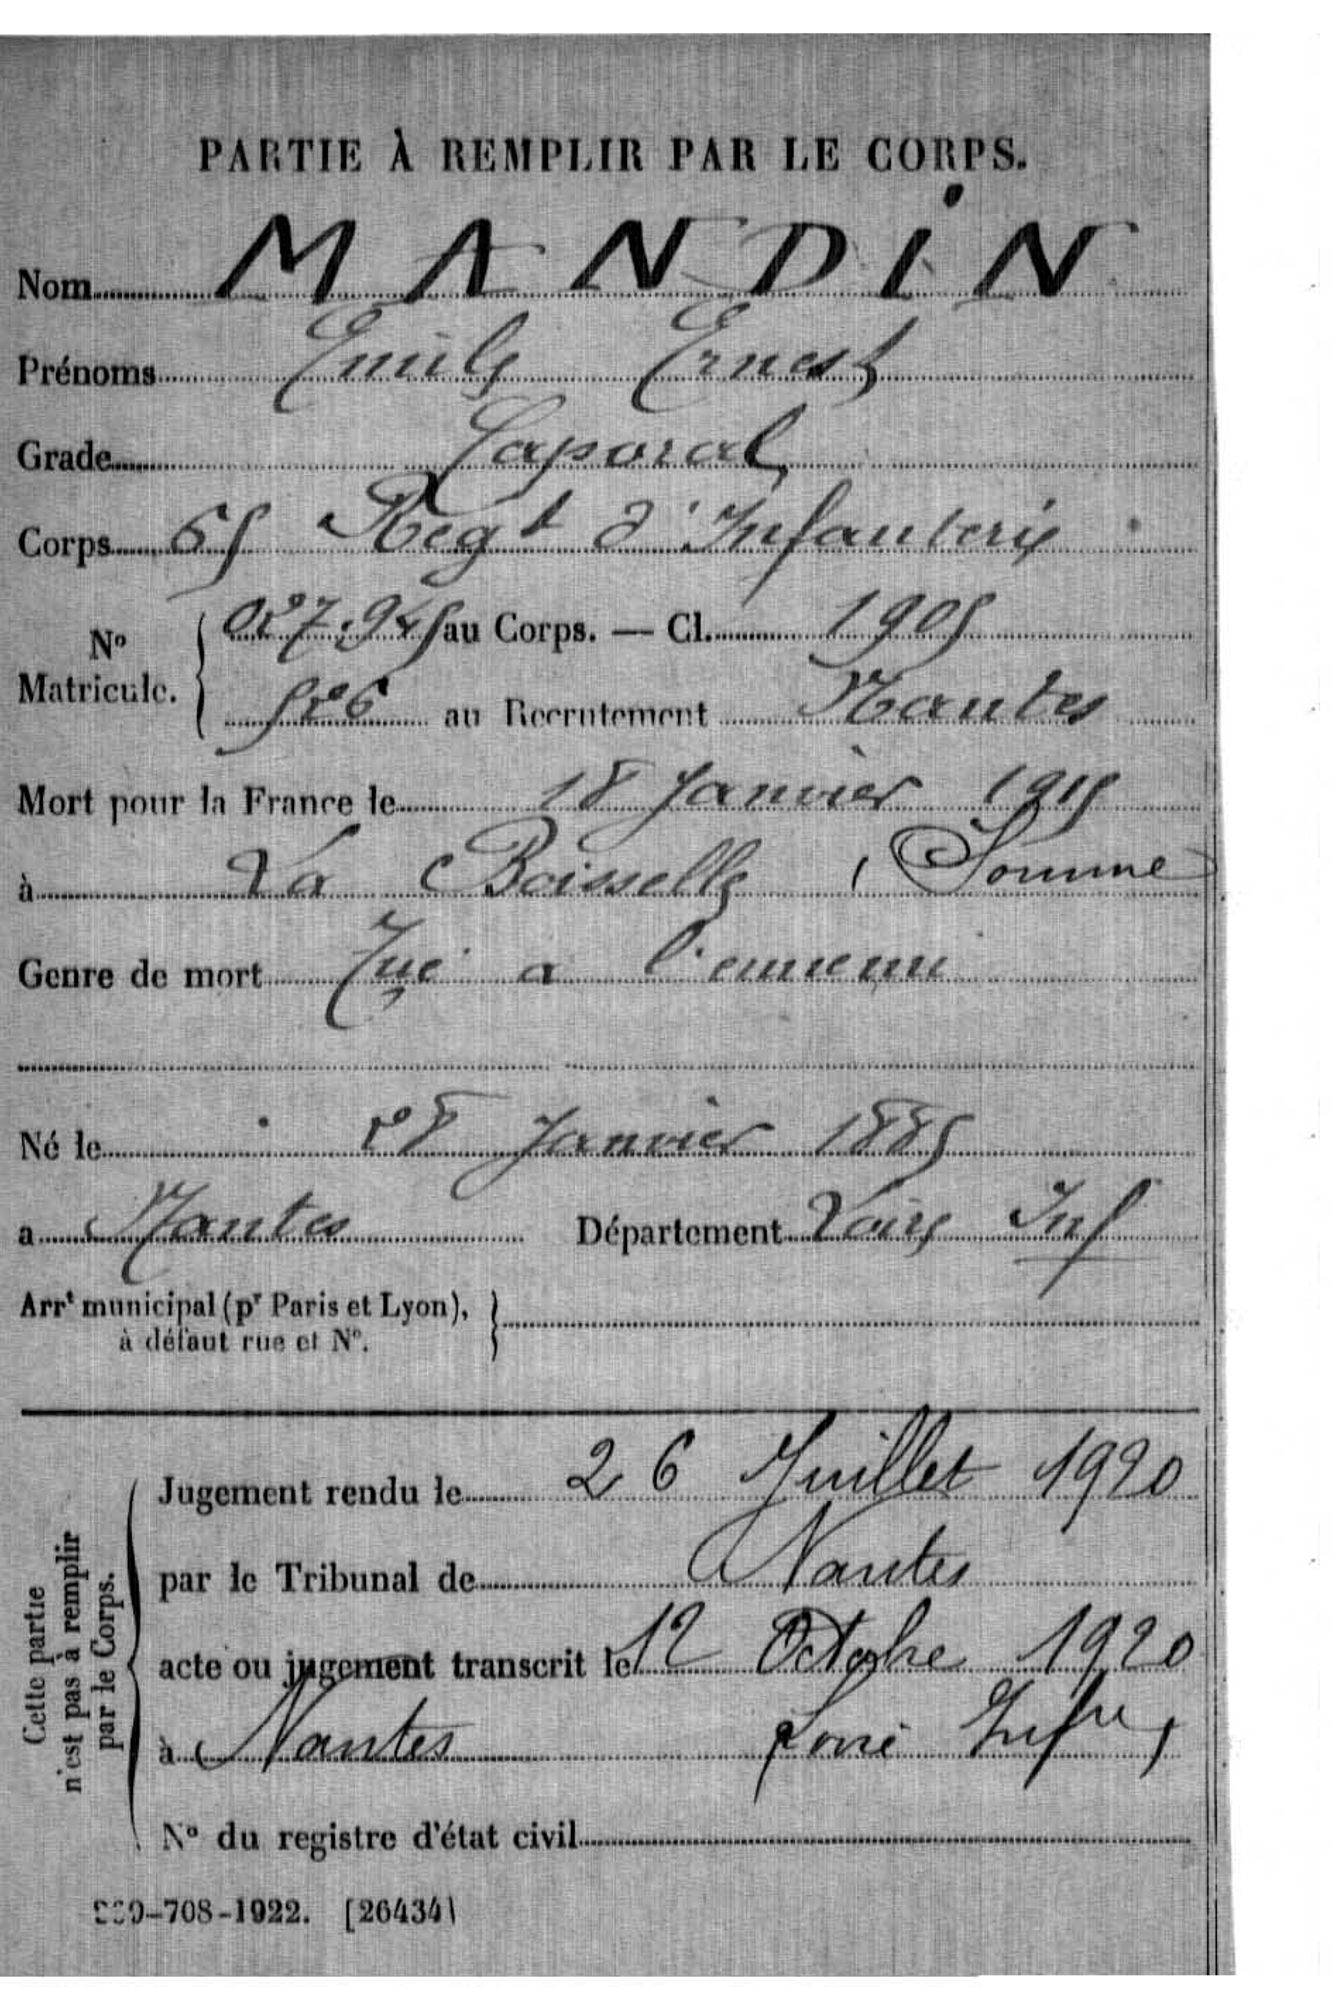 PARTIE À REMPLIR PAR LE CORPS.
Nom MANDIN
Prénoms Emile Ernest
Grade Caporal
Corps 65 Regt d'Infanterie
No Matricule. 027.945 au Corps. — Cl. 1905
526 au Recrutement Nantes
Mort pour la France le 18 Janvier 1915
à La Boisselle (Somme
Genre de mort Tué a l'ennemi
Né le 28 Janvier 1885
a Nantes Département Loire Inf
Arrt municipal (pr Paris et Lyon),
à défaut rue et No.
Cette partie
n'est pas à remplir
par le Corps.
Jugement rendu le 26 Juillet 1920
par le Tribunal de Nantes
acte ou jugement transcrit le 12 Octobre 1920
à Nantes Loire Infre
No du registre d'état civil
-708-1922. [26434]